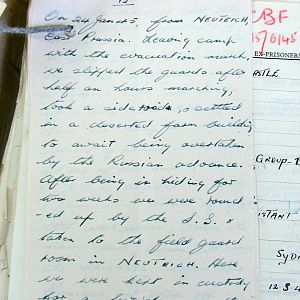 15
On 24 Jan 45, from NEUTEICH,
East Prussia. Leaving camp
with the evacuation march,
we slipped the guards after
half an hours marching,
took a sideroad, & settled
in a deserted farm building
to await being overtaken
by the Russian advance.
After being in hiding for
two weeks we were round
-ed up by the S.S. &
taken to the field guard
room in NEUTEICH. Here
we were kept in custody
CBF
15/6/45
EX-PRISONERS
STLE
GROUP-
ISTANT
SYD
12.8.4